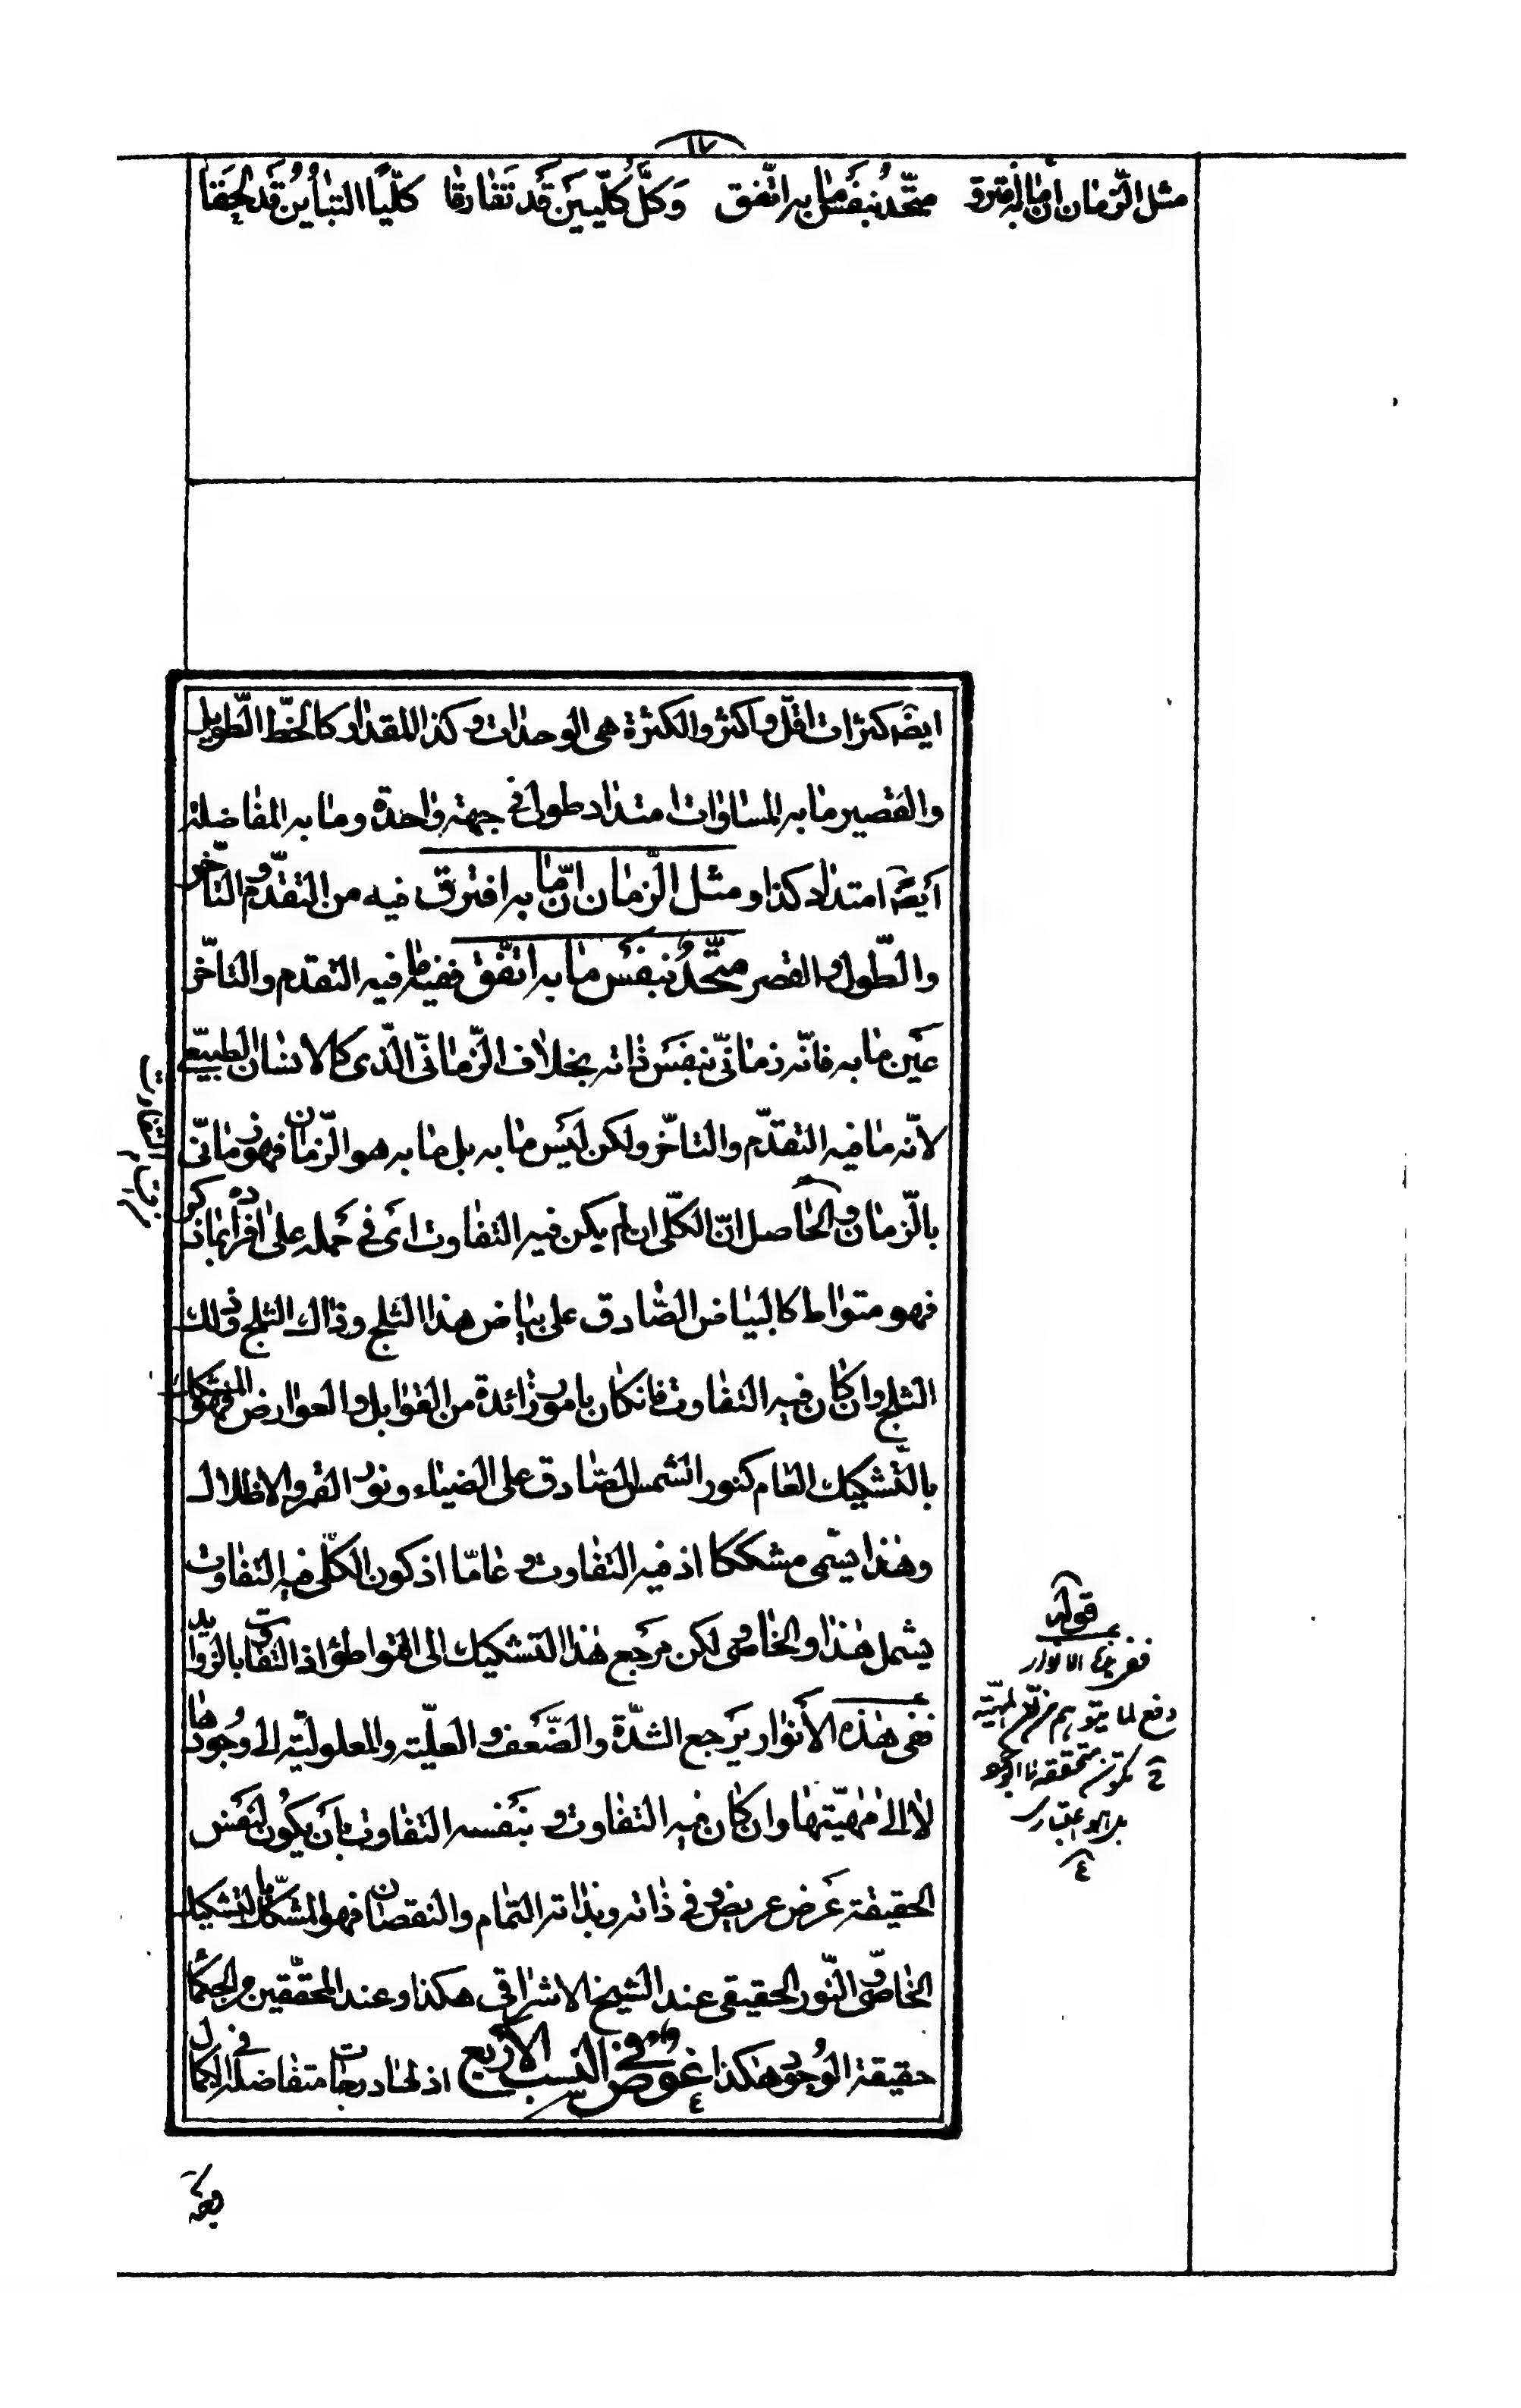 ١٧
مثل الزّمان انّ ما به افترق متّحدٌ بنفس ما به اتّفق وَكلُّ كُلّيين قَد تَفارقا كلّيًا التباُينُ قَد لحِقا
ايضَه كثرات اقلّ واكثر والكثرة هى الوحدات وكذا المقدار كالخطّ الطّويل
والقصير ما به المساوات امتداد طولى فى جهة واحدة وما به المفاضلة
ايضَه امتداد كذا ومثل الزّمان انّ ما به افترق فيه من التقدّم والتاخّر
والطّول والقصر متّحدٌ بنفس ما به اتّفق ففيه ما فيه التقدم والتاخّر
عَين ما به فانّه زمانىّ بنفَس ذاته بخلاف الزّمانىّ الّذى كالانسان الطبيعى
لانّه ما فيه التقدّم والتاخّر ولكن ليَس ما به بل ما به هو الزّمان فهو زمانىّ
بالزّمان والحاصل انّ الكلّى ان لم يكن فيه التفاوت اى فى حَمله على افراده بما ذكر
فهو متواط كالبياض الصّادق على بياض هذا الثلج وذاك الثلج وذلك
الثلج وان كان فيه التفاوت فان كان بامور زائدة من القوابل والعوارض فهو المشكك
بالتّشكيك العام كنور الشمس الصّادق على الضياء ونور القمر والاظلال
وهذا يسمّى مشككا اذ فيه التفاوت وعامّا اذ كون الكلّى فيه التفاوت
يشمل هذا والخاصى لكن مرَجع هذا التشكيك الى التواطؤ اذ التفاوت بالزوايد
ففى هذه الأنوار يَرجع الشدّة والضّعَف والعلّية والمعلوليّة الى وجودها
لا الى مهيّتها وان كان فيه التفاوت وبنَفسه التفاوت بأن يكُون لنَفس
الحقيقة عَرض عريض فى ذاته وبذاته التمام والنقصان فهو المشكّك بالتشكيك
الخاصّى والنّور الحقيقى عند الشيخ الاشراقى هكذا وعند المحققّين من الحكماء
حقيقة الوُجود هكذا غوص فى النسب الأربع اذ لها درجات متفاضلة فى الكمال
قوله
ففى هذه الانوار
دفع لما يتوهم